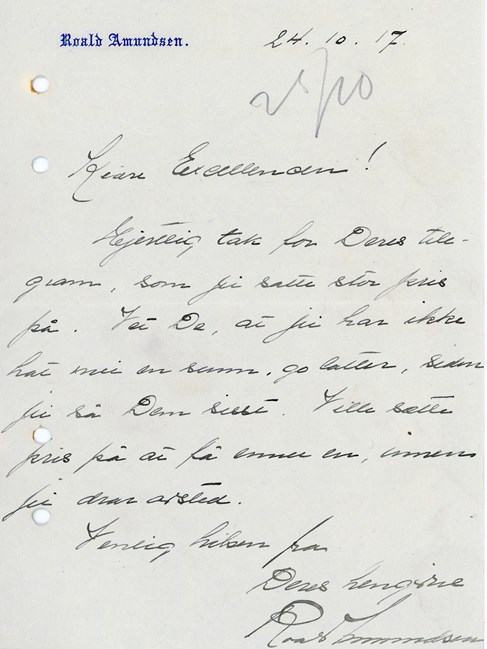 Roald Amundsen.
24.10.17.
25/10
Kjære Excellencen!
Hjertelig tak for Deres tele-
gram, som jei satte stor pris
på. Vet De, at jei har ikke
hat mei en sunn, go latter, siden
jei så Dem sisst. Ville sætte
pris på at få ennu en, innen
jei drar avsted.
Venlig hilsen fra
Deres hengivne
Roald Amundsen